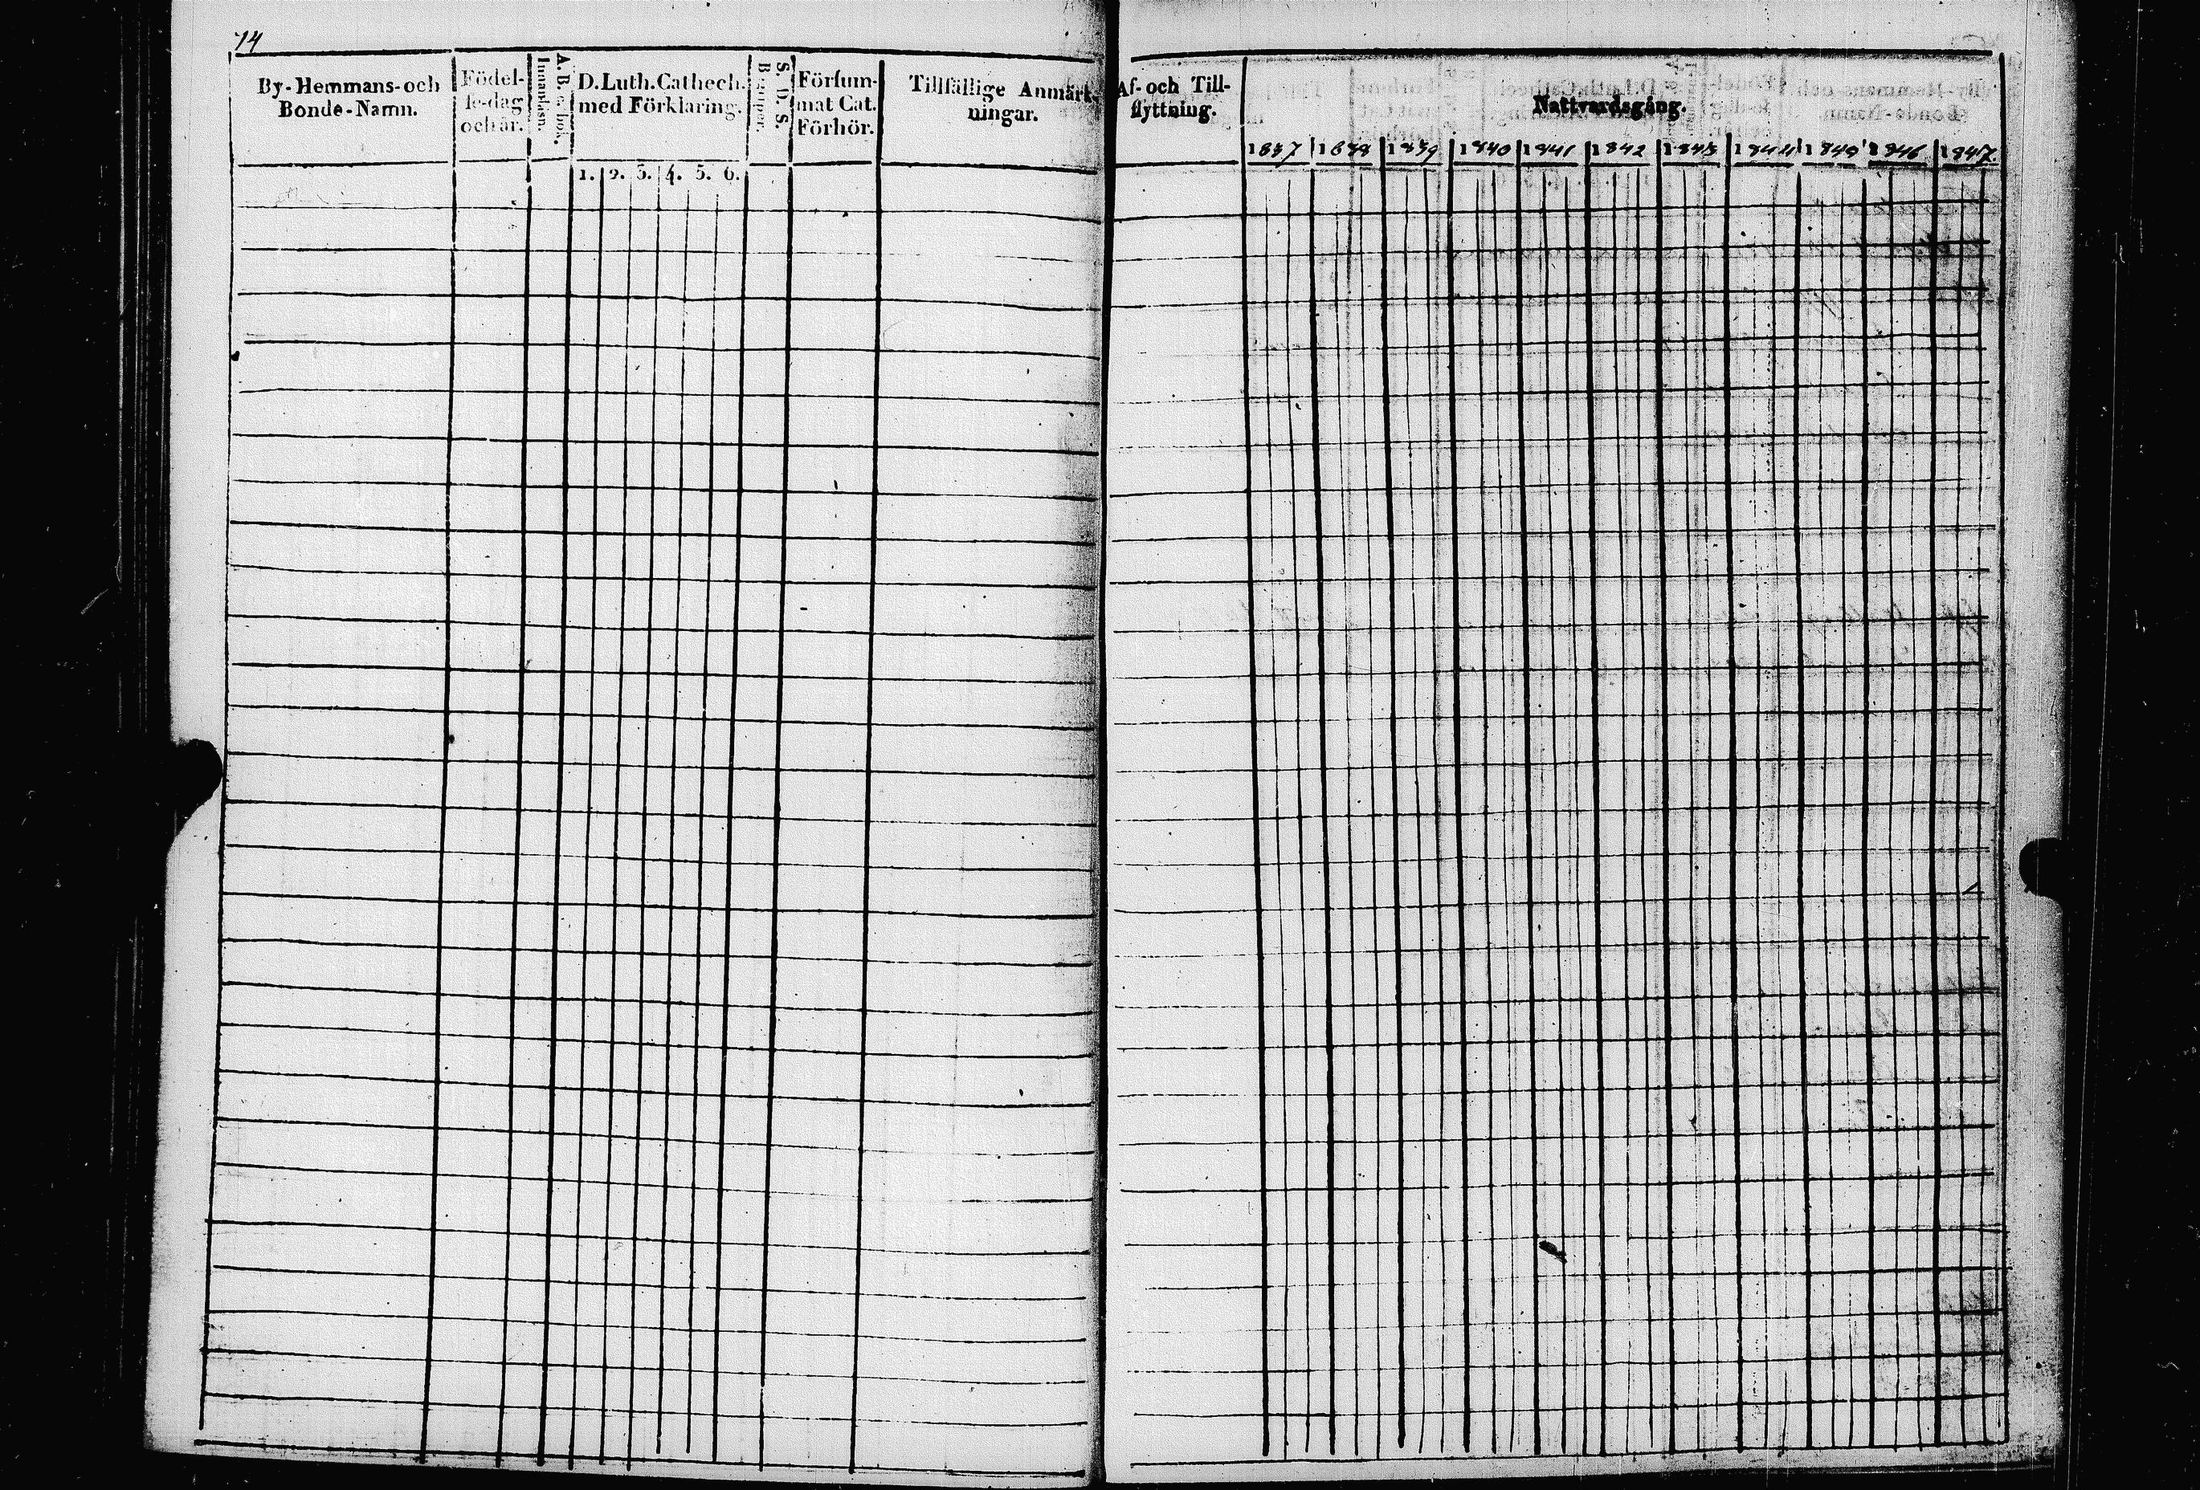 74
By-Hemmans-och
Bonde-Namn.
Födel-
se-dag
och år.
Innanläsn.
A. B. C. bok.
D. Luth. Cathech.
med Förklaring.
1. 2. 3. 4. 5. 6.
S. D. S.
Begriper.
Försum-
mat Cat.
Förhör.
Tillfällige Anmärk-
ningar.
Af- och Till-
flyttning.
Nattvardsgång.
1837 1838 1839 1840 1841 1842 1843 1844 1845 1846 1847.